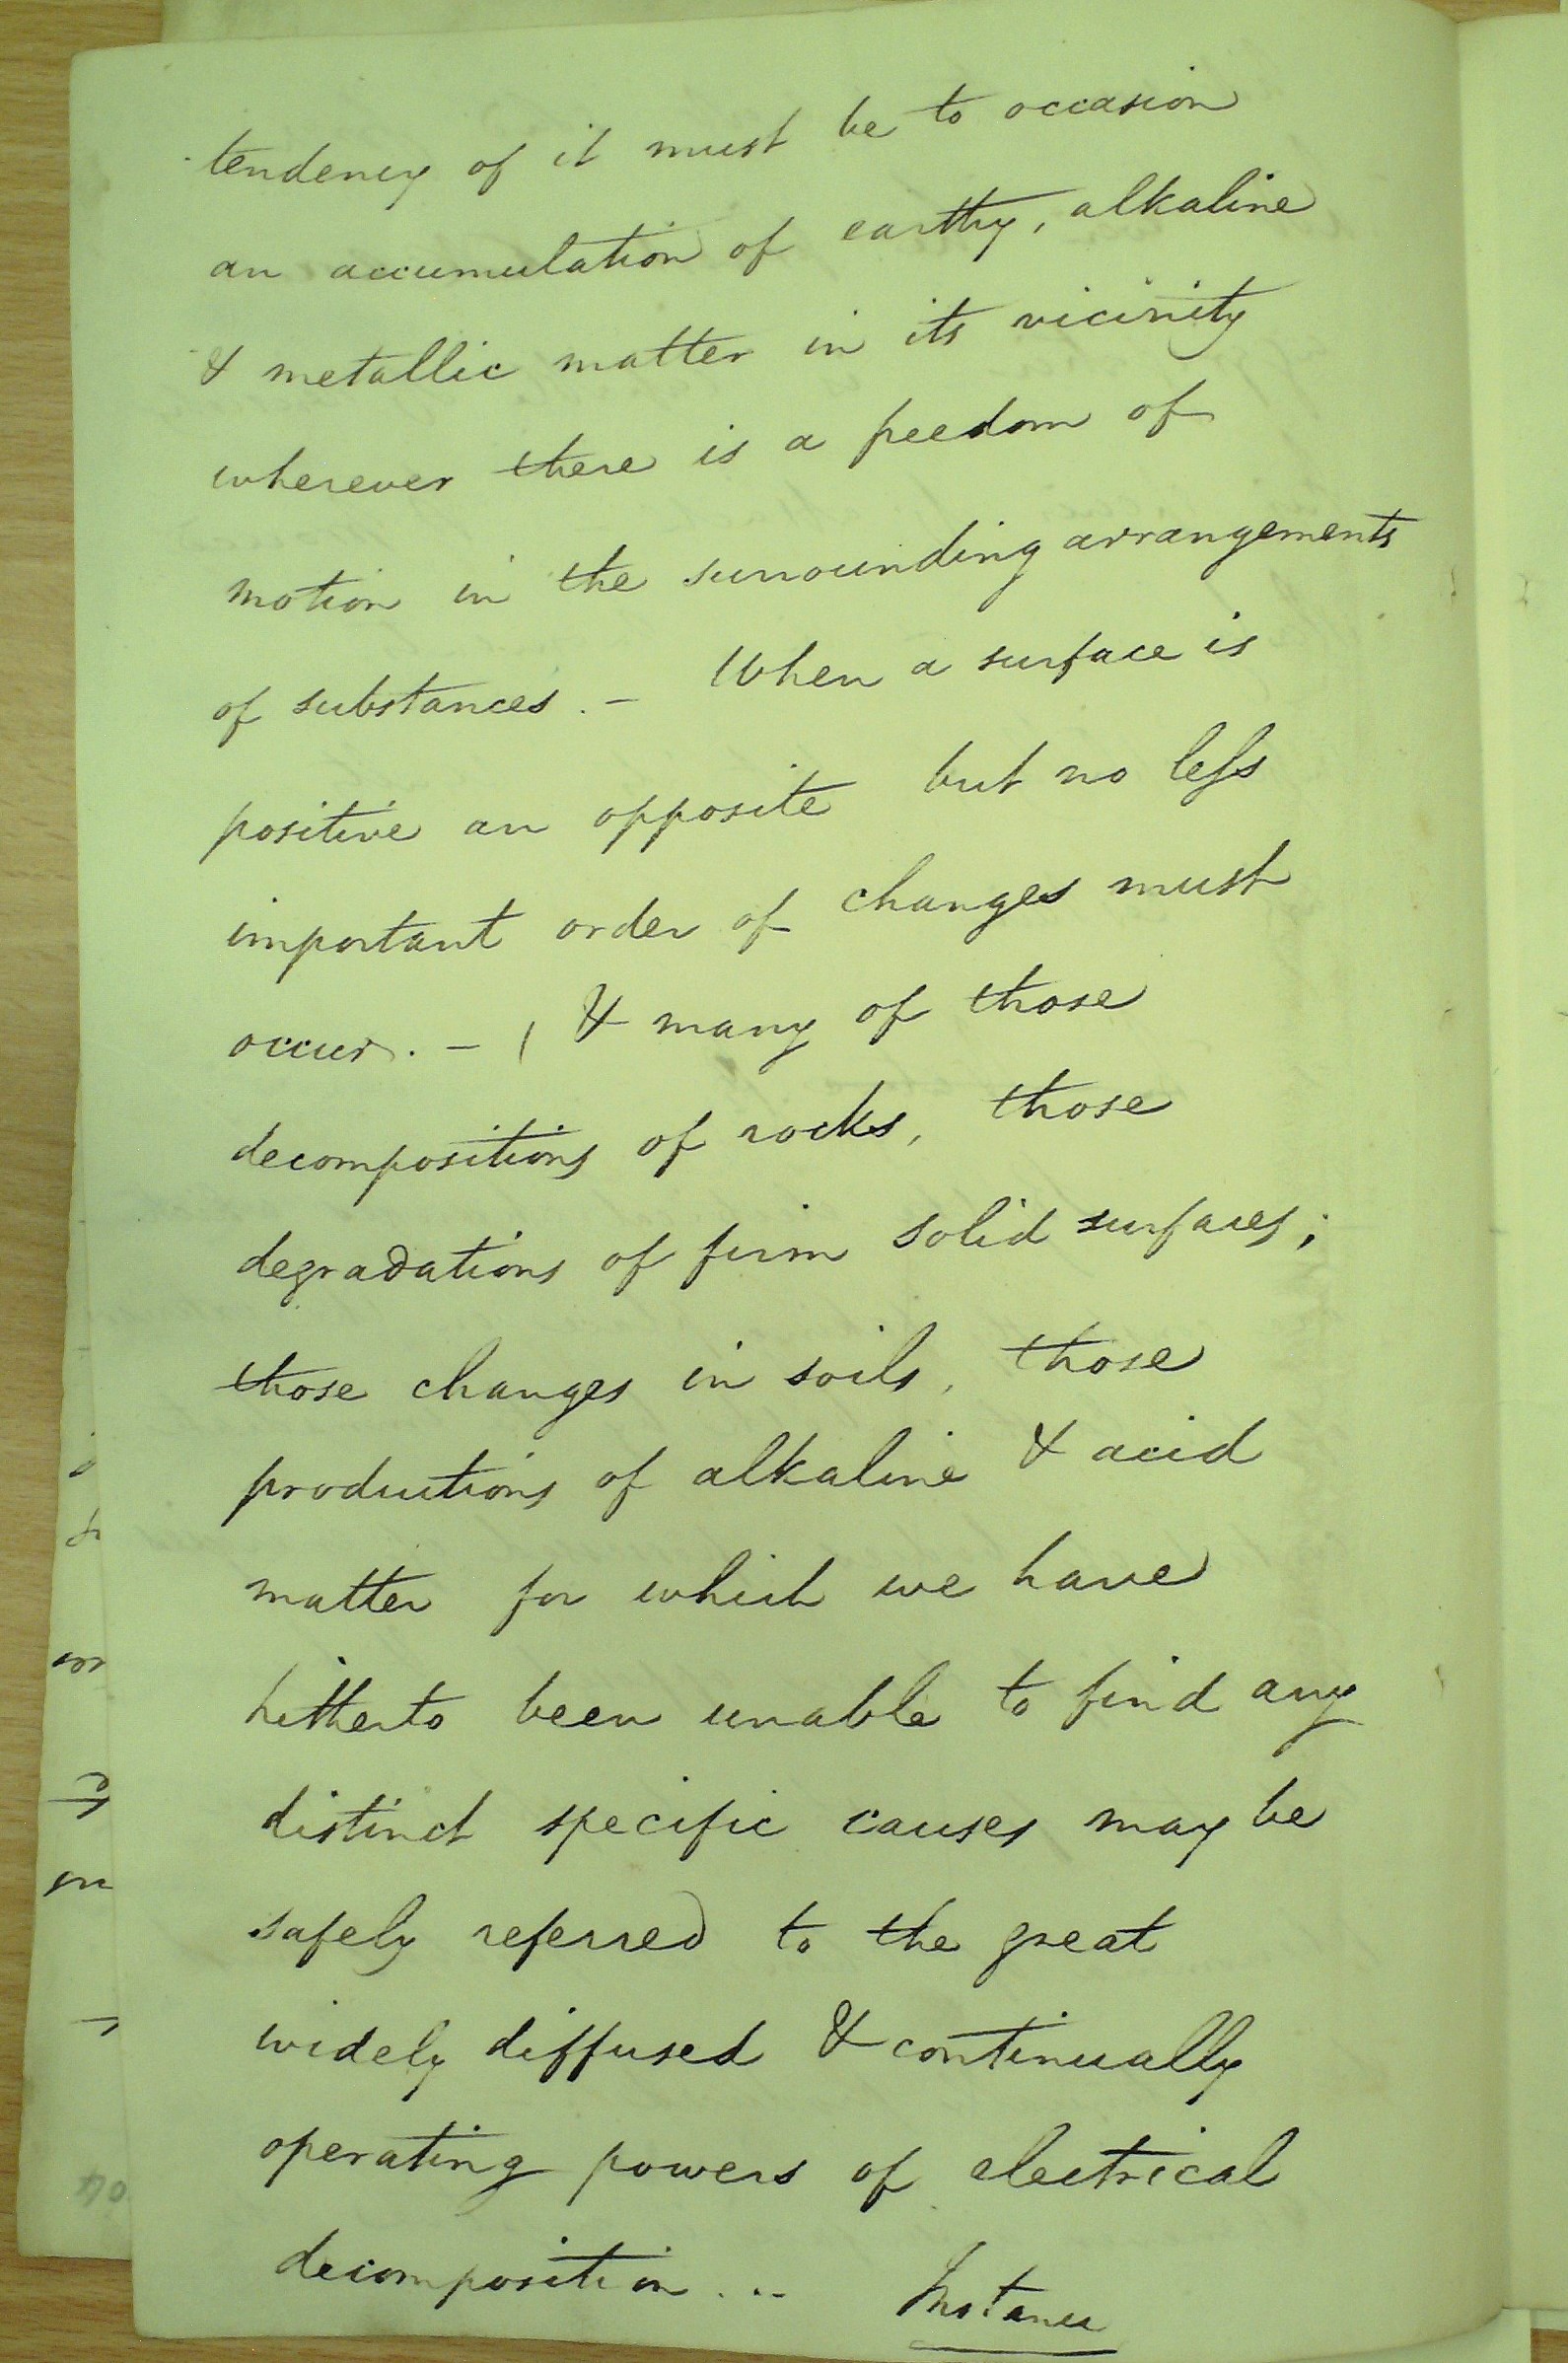 tendency of it must be to occasion
an accumulation of earthy, alkaline
& metallic matter in its vicinity
wherever there is a freedom of
motion in the surrounding arrangements
of substances. - When a surface is
positive an opposite but no less
important order of changes must
occur. - ( & many of those
decompositions of rocks, those
degradations of firm solid surfaces;
those changes in soils, those
productions of alkaline & acid
matter for which we have
hitherto been unable to find any
distinct specific causes may be
safely referred to the great
widely diffused & continually
operating powers of electrical
decomposition. --
Instance